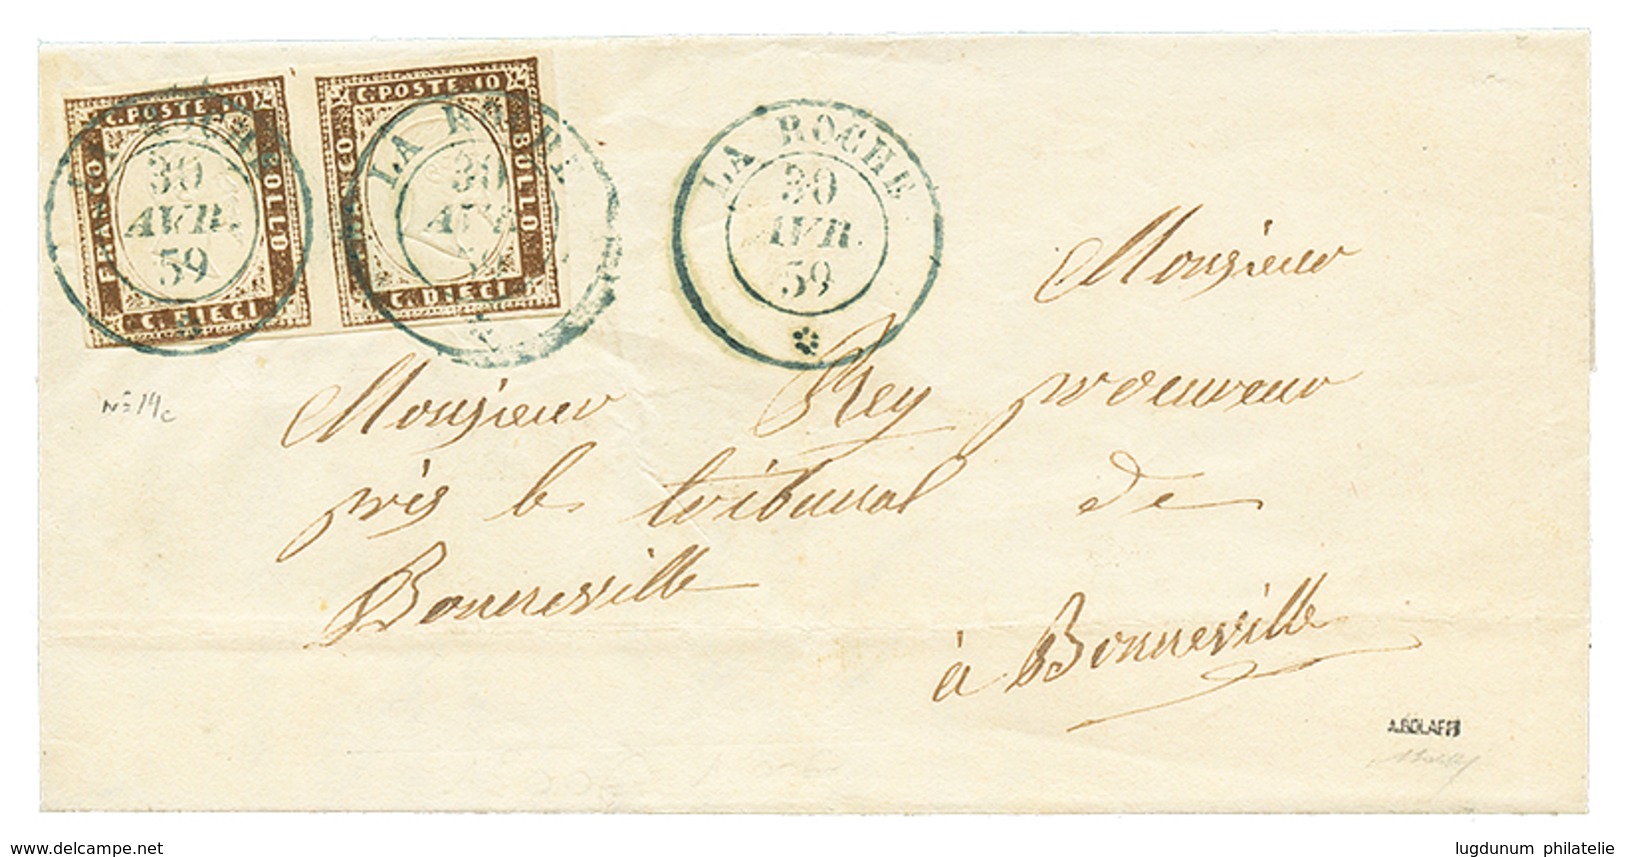 C. POSTE. 10
FRANCO
BOLLO
C. DIECI
C. POSTE. 10
FRANCO
BOLLO
C. DIECI
LA ROCHE
30
AVR.
59
LA ROCHE
30
AVR.
59
LA ROCHE
30
AVR.
59
Nº 14c
Monsieur
Monsieur Rey procureur
près le tribunal de
Bonneville
à Bonneville
A.BOLAFFI
delcampe.net
lugdunum philatelie